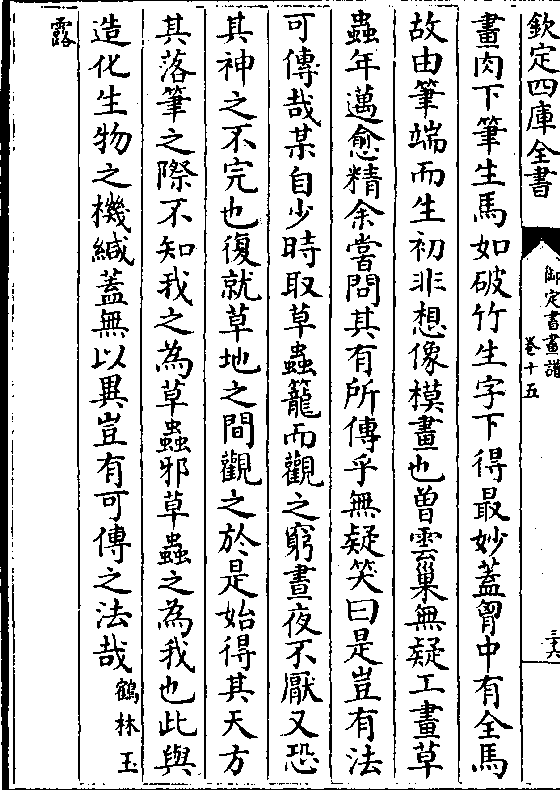 欽定四庫全書
御定書畫譜
卷十五
三六
畫肉下筆生馬如破竹生字下得最妙蓋胷中有全馬
故由筆端而生初非想像模畫也曾雲巢無疑工畫草
蟲年邁愈精余嘗問其有所傳乎無疑笑曰是豈有法
可傳哉某自少時取草蟲籠而觀之窮晝夜不厭又恐
其神之不完也復就草地之間觀之於是始得其天方
其落筆之際不知我之為草蟲邪草蟲之為我也此與
造化生物之機緘蓋無以異豈有可傳之法哉鶴林玉
露